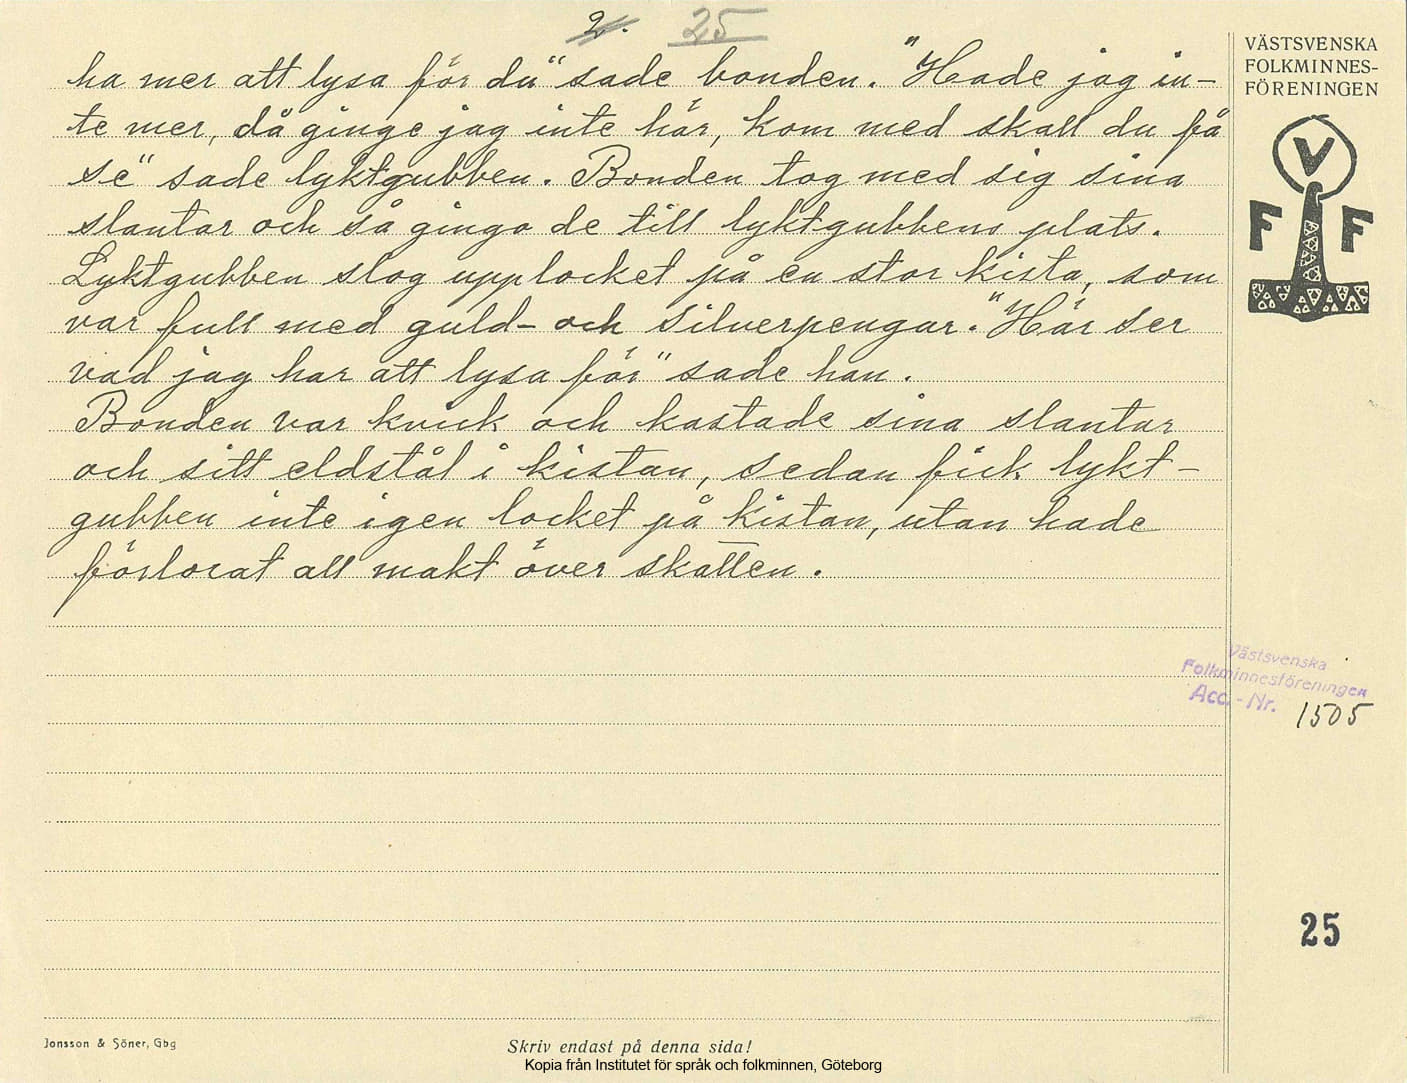 2. 25
ha mer att lysa för du" sade bonden. "Hade jag in-
te mer, då ginge jag inte här, kom med skall du få
se" sade lyktgubben. Bonden tog med sig sina
slantar och så gingo de till lyktgubbens plats.
Lyktgubben slog upp locket på en stor kista, som
var full med guld- och silverpengar. "Här ser
vad jag har att lysa för" sade han.
Bonden var kvick och kastade sina slantar
och sitt eldstål i kistan, sedan fick lykt-
gubben inte igen locket på kistan, utan hade
förlorat all makt över skatten.
VÄSTSVENSKA
FOLKMINNES-
FÖRENINGEN
V
F F
Västsvenska
Folkminnesföreningen
Acc.-Nr. 1505
25
Jonsson & Söner, Gbg
Skriv endast på denna sida!
Kopia från Institutet för språk och folkminnen, Göteborg